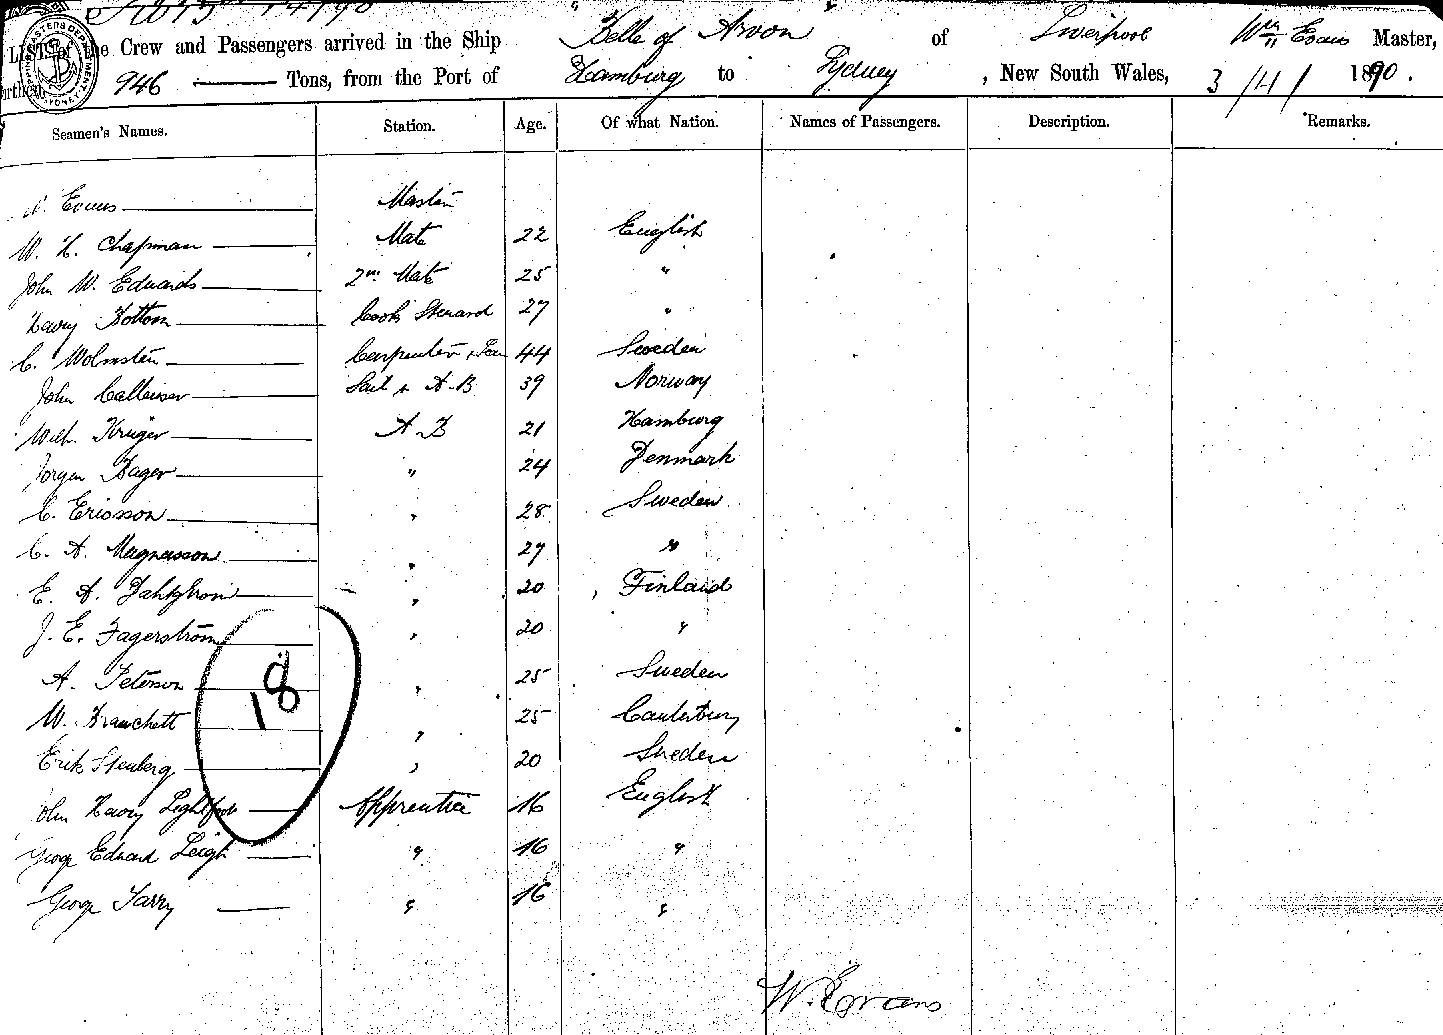 LIST of the Crew and Passengers arrived in the Ship "Belle of Arvon" of Liverpool Wm Evans Master,
946 Tons, from the Port of Hamburg to Sydney, New South Wales, 3/4/1890.
Seamen's Names. Station. Age. Of what Nation. Names of Passengers. Description. Remarks.
W. Evans Master
W. H. Chapman Mate 22 English
John W. Edwards 2nd Mate 25 "
Henry Bottom Cook Steward 27 "
C. Wolmsten Carpenter 44 Sweden
John Sail & A.B. 39 Norway
Wilh. Kruger A.B 21 Hamburg
Jorgen Bager " 24 Denmark
C. Ericsson " 28 Sweden
C. A. Magnusson " 27 "
E. A. " 20 Finland
J. E. Fagerström " 20 "
A. Peterson " 25 Sweden
W. " 25 Canterbury
Erik Stenberg " 20 Sweden
18
John Henry Lightfoot Apprentice 16 English
George Edward Leigh " 16 "
George Tarry " 16 "
W. Evans